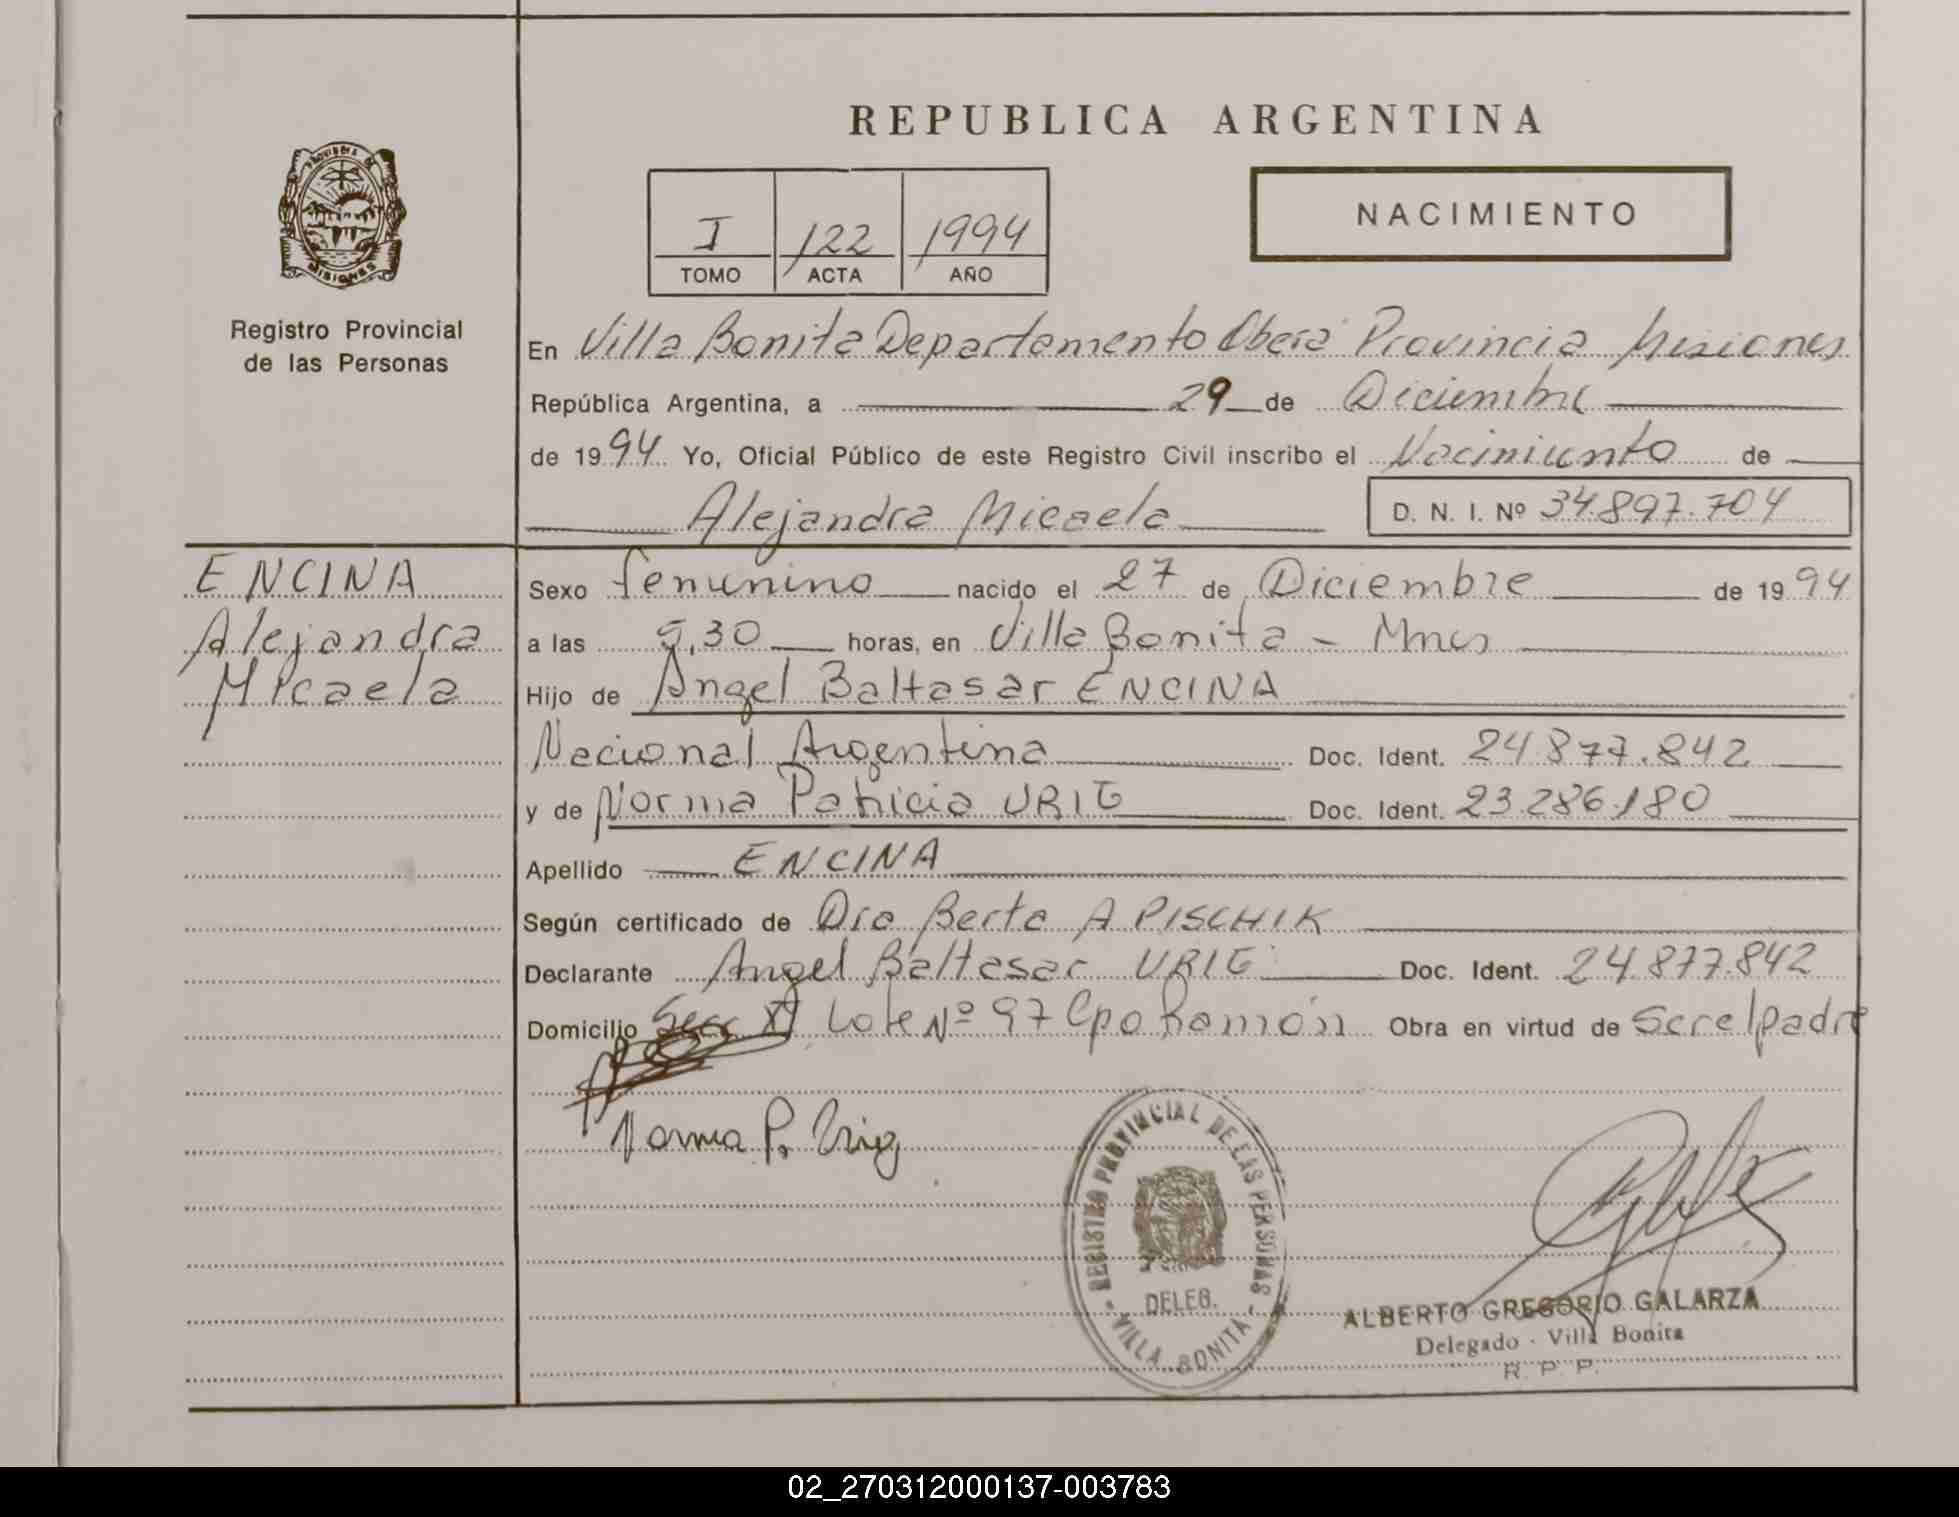 REPUBLICA ARGENTINA
PROVINCIA DE
MISIONES
Registro Provincial
de las Personas
I 122 1994
TOMO ACTA AÑO
NACIMIENTO
En Villa Bonita Departamento Oberá Provincia Misiones
República Argentina, a 29 de Diciembre
de 1994 Yo, Oficial Público de este Registro Civil inscribo el Nacimiento de
Alejandra Micaela D. N. I. Nº 34.897.704
ENCINA
Alejandra
Micaela
Sexo femenino nacido el 27 de Diciembre de 1994
a las 5,30 horas, en Villa Bonita - Mnes
Hijo de Angel Baltasar ENCINA
Nacional Argentina Doc. Ident. 24.877.842
y de Norma Patricia URIG Doc. Ident. 23.286.180
Apellido ENCINA
Según certificado de Dra Berta A PISCHIK
Declarante Angel Baltasar URIG Doc. Ident. 24.877.842
Domicilio Secc XI Lote Nº 97 Cpo Ramón Obra en virtud de Ser el padre
Norma P. Urig
REGISTRO PROVINCIAL DE LAS PERSONAS
DELEG.
- VILLA BONITA -
ALBERTO GREGORIO GALARZA
Delegado - Villa Bonita
R. P. P.
02_270312000137-003783